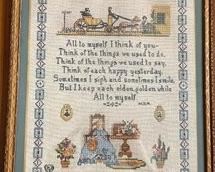 All to myself I think of you-
Think of the things we used to do.
Think of the things we used to say.
Think of each happy yesterday.
Sometimes I sigh and sometimes I smile.
But I keep each olden, golden while
All to myself.